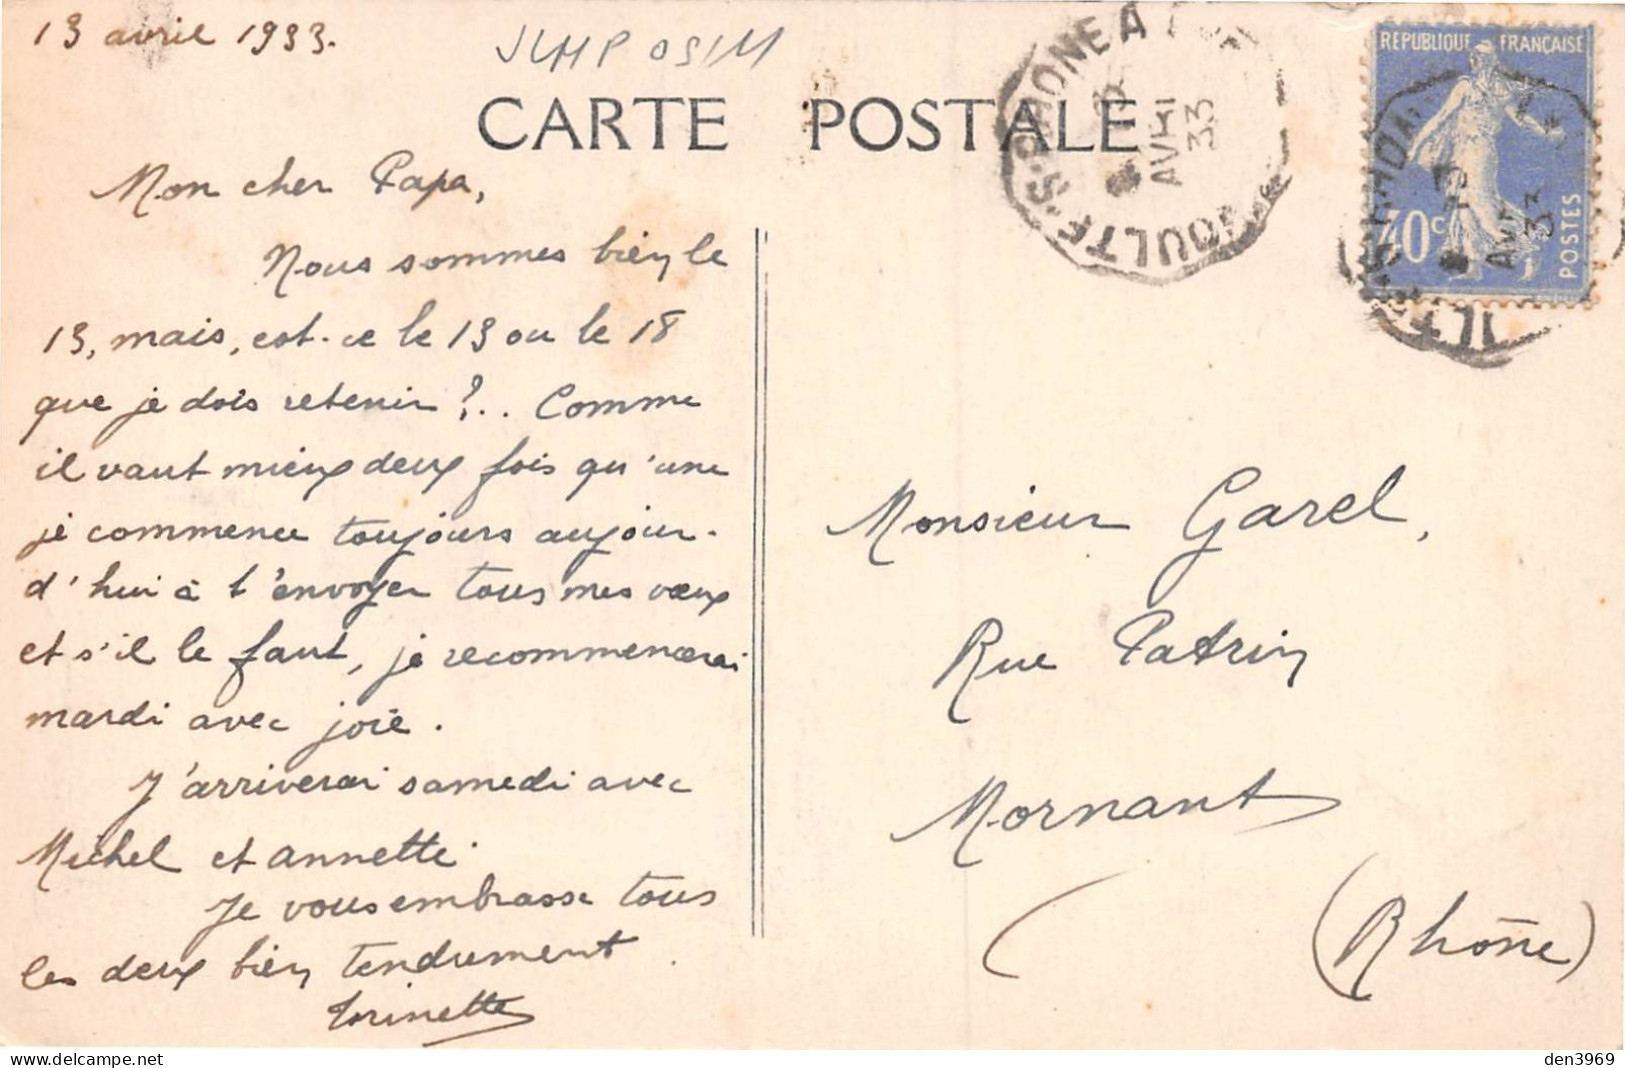 13 avril 1933.
CARTE POSTALE
REPUBLIQUE FRANÇAISE
40c
POSTES
AVRI
33
Mon cher Papa,
Nous sommes bien le
13, mais, est-ce le 13 ou le 18
que je dois retenir ?.. Comme
il vaut mieux deux fois qu'une
je commence toujours aujour-
d'hui à t'envoyer tous mes vœux
et s'il le faut, je recommencerai
mardi avec joie.
J'arriverai samedi avec
Michel et annette.
Je vous embrasse tous
les deux bien tendrement.
Monsieur Garel,
Rue Patrin
Mornant
(Rhône)
den3969